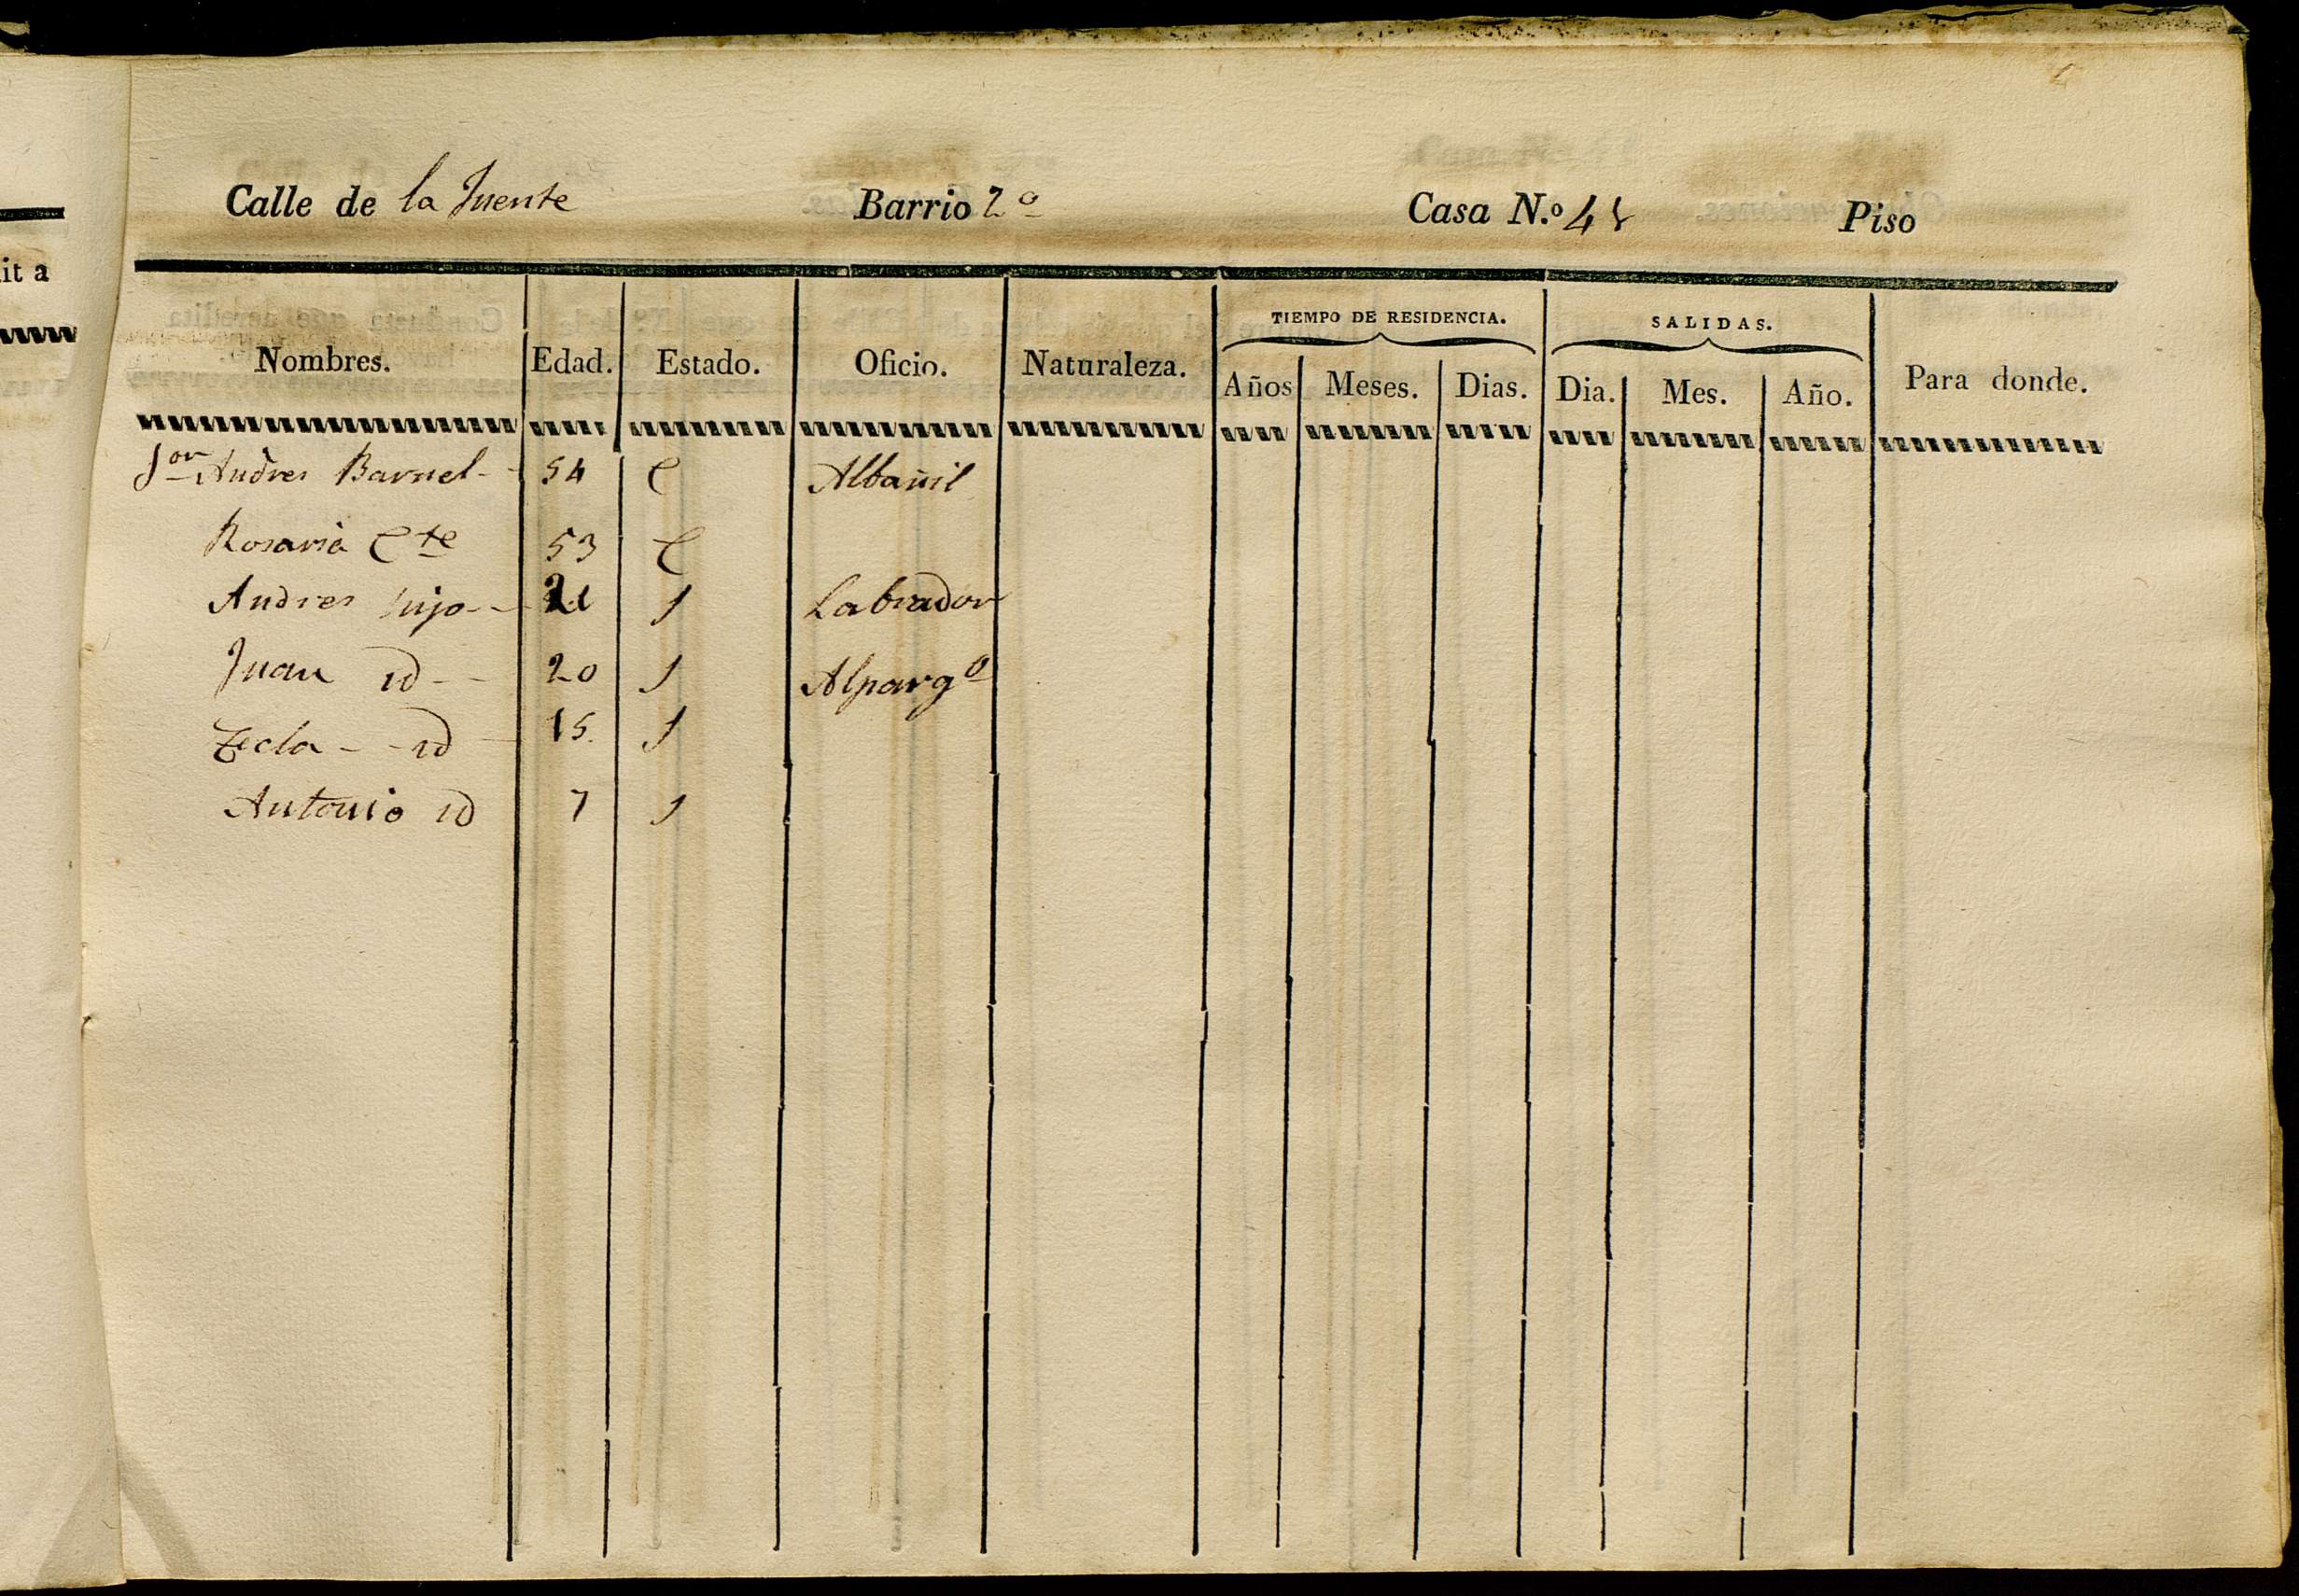 it a
Calle de la fuente Barrio 2º Casa N.º Piso
Nombres. Edad. Estado. Oficio. Naturaleza. TIEMPO DE RESIDENCIA. SALIDAS. Para donde.
Años Meses. Dias. Dia. Mes. Año.
Jor Andres Barnel 54 C Albañil
Rosaria Cte 53 C
Andres hijo 21 S Labrador
Juan id 20 S Alpargº
Tecla id 15 S
Antonio id 7 S